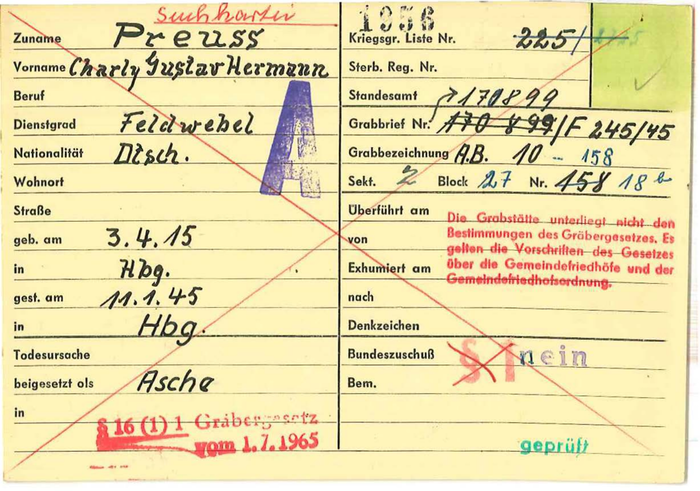 Suchkartei
1956
Zuname Preuss
Vorname Charly Gustav Hermann
Beruf
Dienstgrad Feldwebel
Nationalität Dtsch.
Wohnort
Straße
geb. am 3.4.15
in Hbg.
gest. am 11.1.45
in Hbg.
Todesursache
beigesetzt als Asche
in
§ 16 (1) 1 Gräbergesetz
vom 1.7.1965
A
Kriegsgr. Liste Nr. 225/
Sterb. Reg. Nr.
Standesamt 170899
Grabbrief Nr. 170 899/F 245/45
Grabbezeichnung A.B. 10 - 158
Sekt. Z Block 27 Nr. 158 18b
Überführt am
von
Exhumiert am
nach
Denkzeichen
Die Grabstätte unterliegt nicht den
Bestimmungen des Gräbergesetzes. Es
gelten die Vorschriften des Gesetzes
über die Gemeindefriedhöfe und der
Gemeindefriedhofsordnung.
Bundeszuschuß § 1 nein
Bem.
geprüft